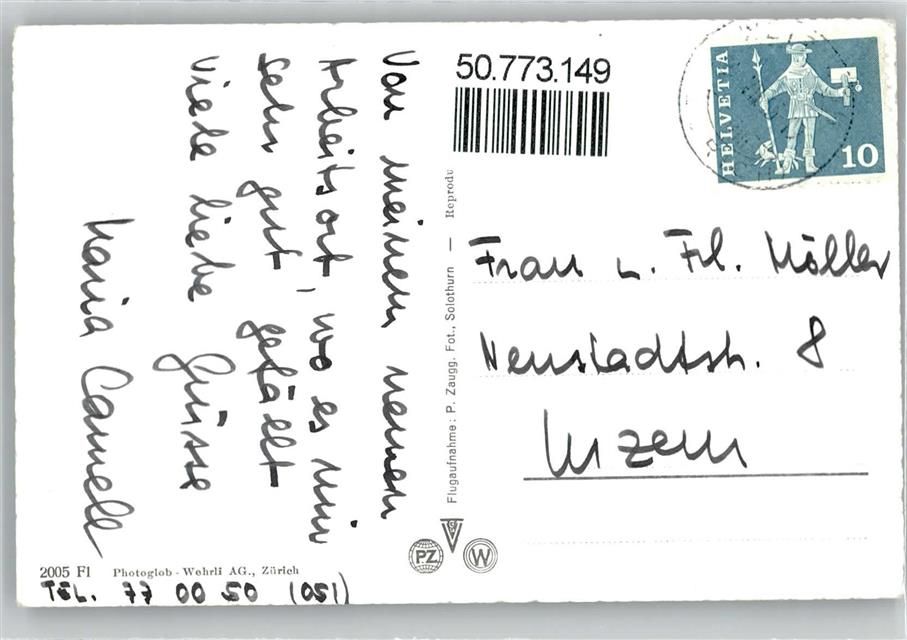 Von meinem neuen
Arbeitsort, wo es mir
sehr gut gefällt
viele liebe Grüsse
Maria
50.773.149
HELVETIA
10
Frau u. Frl. Möller
Neustadtstr. 8
Luzern
Flugaufnahme: P. Zaugg. Fot., Solothurn — Reprodu
PZ
W
2005 Fl Photoglob - Wehrli AG., Zürich
TEL. 77 00 50 (051)